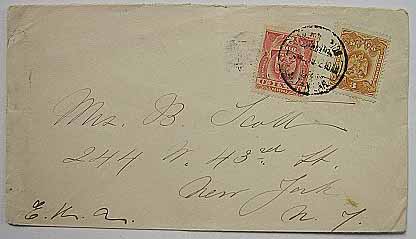 Mrs. B. Scott
244 W. 43rd St.
New York
N. Y.
E. U. A.